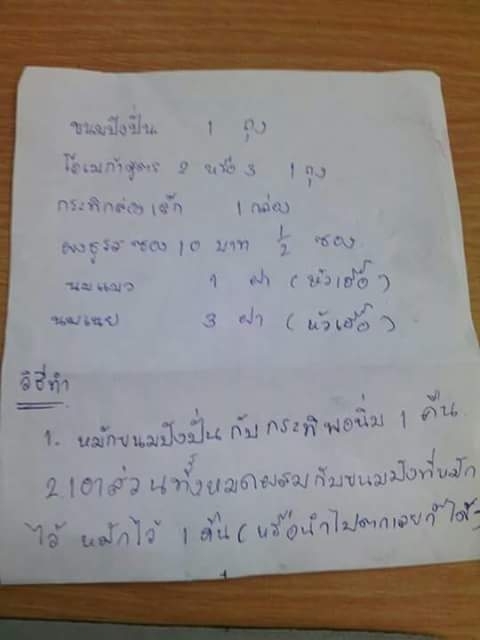 ขนมปังป่น 1 ถุง
โอเมก้าสูตร 2 หรือ 3 1 ถุง
กระทิกล่องเล็ก 1 กล่อง
ผงชูรส ซอง 10 บาท 1/2 ซอง
นมแมว 1 ฝา (หัวเชื้อ)
นมเนย 3 ฝา (หัวเชื้อ)
วิธีทำ
1. หมักขนมปังป่น กับ กระทิพอนิ่ม 1 คืน
2. เอาส่วนทั้งหมดผสมกับขนมปังที่หมัก
ไว้ หมักไว้ 1 คืน (หรือนำไปตกเลยก็ได้)